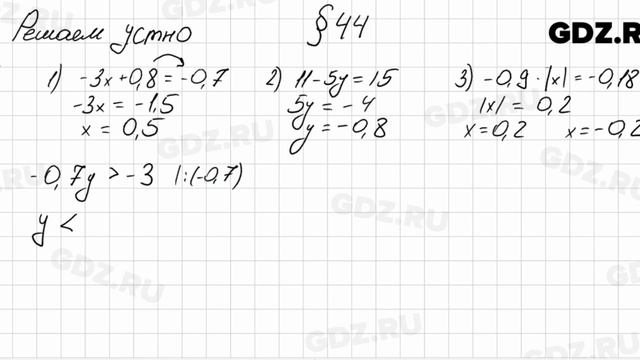 Решаем устно § 44
GDZ.RU
1) -3x+0,8=-0,7
-3x = -1,5
x = 0,5
2) 11-5y=15
5y = -4
y = -0,8
3) -0,9·|x|=-0,18
|x| = 0,2
x=0,2 x=-0,2
-0,7y > -3 |:(-0,7)
y <
GDZ.RU
GDZ.RU
GDZ.RU
GDZ.RU
GDZ.RU